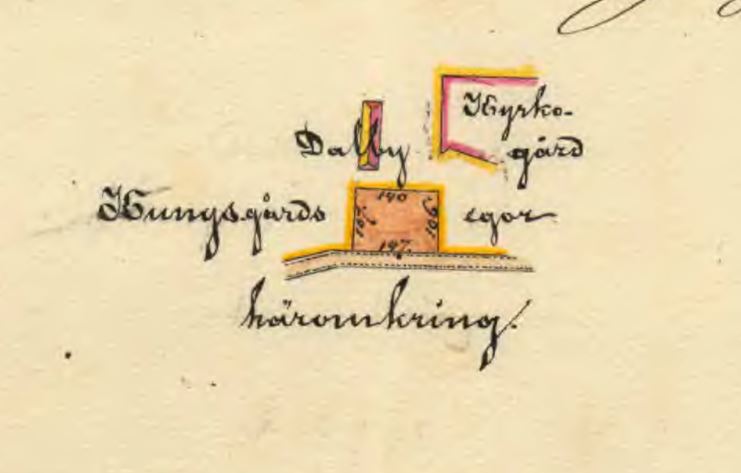 Kyrko-
gård
Dalby
Kungsgårds egor
140
147.
häromkring.